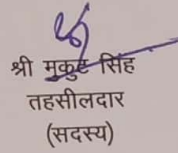 श्री मुकुट सिंह
तहसीलदार
(सदस्य)